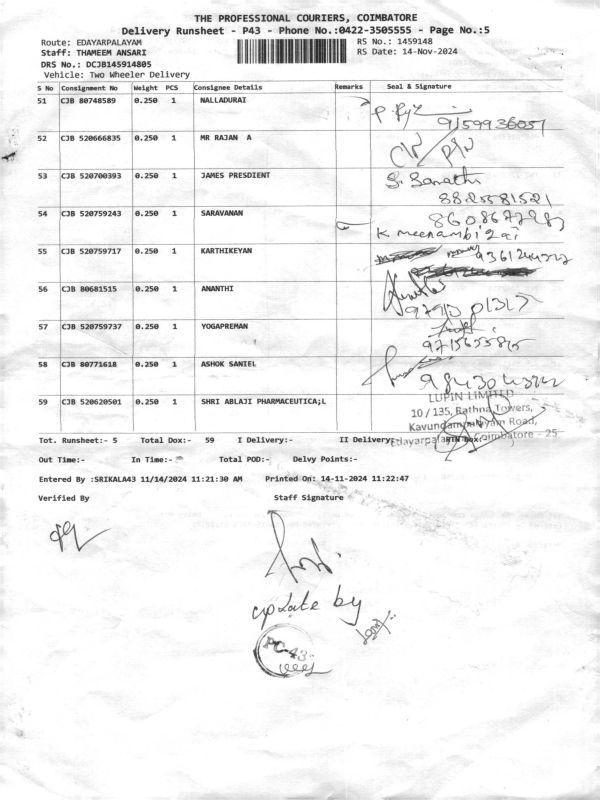 THE PROFESSIONAL COURIERS, COIMBATORE
Delivery Runsheet - P43 - Phone No.:0422-3505555 - Page No.:5
Route: EDAYARPALAYAM RS No.: 1459148
Staff: THAMEEM ANSARI RS Date: 14-Nov-2024
DRS No.: DCJB145914805
Vehicle: Two Wheeler Delivery
S No Consignment No Weight PCS Consignee Details Remarks Seal & Signature
51 CJB 80748589 0.250 1 NALLADURAI
9159936057
52 CJB 520666835 0.250 1 MR RAJAN A
53 CJB 520700393 0.250 1 JAMES PRESDIENT S.
8825581521
54 CJB 520759243 0.250 1 SARAVANAN
K meenambigai
55 CJB 520759717 0.250 1 KARTHIKEYAN
56 CJB 80681515 0.250 1 ANANTHI
57 CJB 520759737 0.250 1 YOGAPREMAN
58 CJB 80771618 0.250 1 ASHOK SANIEL
59 CJB 520620501 0.250 1 SHRI ABLAJI PHARMACEUTICA;L LUPIN LIMITED
10 / 135, Rathna Towers,
Kavundampalayam Road,
Tot. Runsheet:- 5 Total Dox:- 59 I Delivery:- II Delivery Coimbatore - 25
Out Time:- In Time:- Total POD:- Delvy Points:-
Entered By :SRIKALA43 11/14/2024 11:21:30 AM Printed On: 14-11-2024 11:22:47
Verified By Staff Signature
update by
PC-43